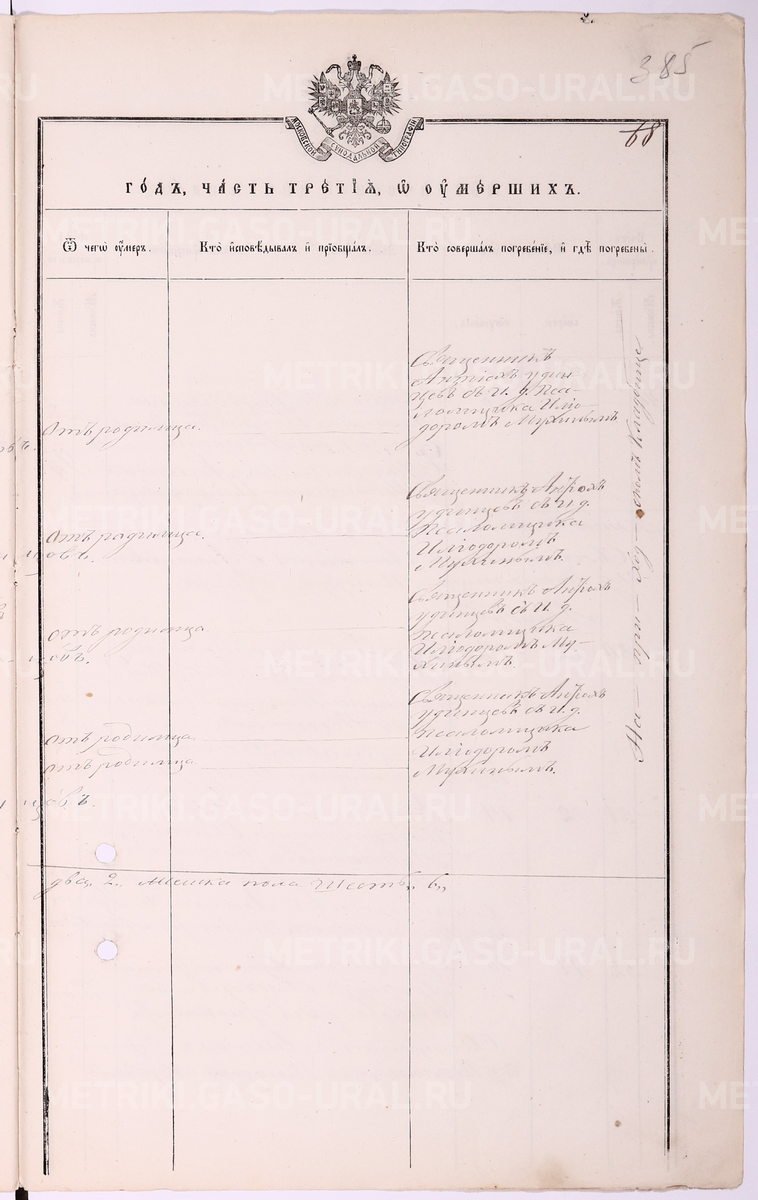 385
68
МОСКОВСКОЙ СѴНОДАЛЬНОЙ ТИПОГРАФІИ
ГО́ДЪ, ЧА́СТЬ ТРЕ́ТІѦ, Ѡ҆ ОУ҆МЕ́РШИХЪ.
Ѿ чегѡ̀ оу҆́меръ.
Кто̀ и҆сповѣ́дывалъ и҆ прїѡбща́лъ.
Кто̀ соверша́лъ погребе́нїе, и҆ гдѣ̀ погребены̀.
Священникъ
Андрей Удин
цевъ съ и. д. Пса-
ломщика Илiо-
доромъ Мухинымъ
отъ родимца.
Священникъ Андрей
Удинцевъ съ и. д.
Псаломщика
Илiодоромъ
Мухинымъ.
отъ родимца.
Священникъ Андрей
Удинцевъ съ и. д.
псаломщика
Илiодоромъ Му-
хинымъ.
отъ родимца
Священникъ Андрей
Удинцевъ съ и. д.
псаломщика
Илiодоромъ
Мухинымъ.
отъ родимца
отъ родимца
На при-ход-скомъ кладбище
два, 2, женска пола шесть, 6,,
METRIKI.GASO-URAL.RU